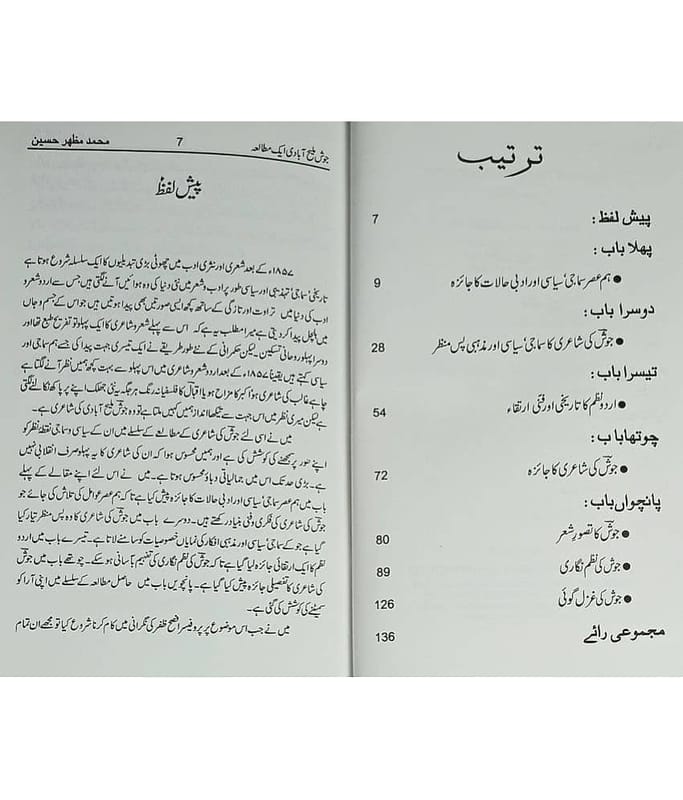 ترتیب
پیش لفظ : 7
پہلا باب :
● ہم عصر سماجی' سیاسی اور ادبی حالات کا جائزہ 9
دوسرا باب :
● جوشؔ کی شاعری کا سماجی' سیاسی اور مذہبی پس منظر 28
تیسرا باب :
● اردو نظم کا تاریخی اور فنی ارتقاء 54
چوتھا باب :
● جوشؔ کی شاعری کا جائزہ 72
پانچواں باب :
● جوشؔ کا تصورِ شعر 80
● جوش کی نظم نگاری 89
● جوش کی غزل گوئی 126
مجموعی رائے 136
جوش ملیح آبادی ایک مطالعہ 7 محمد مظهر حسین
پیش لفظ
۱۸۵۷ء کے بعد شعری اور نثری ادب میں چھوٹی بڑی تبدیلیوں کا ایک سلسلہ شروع ہوتا ہے
تاریخی' سماجی' تہذیبی اور سیاسی طور پر ادب و شعر میں نئی دنیا کی وہ ہوائیں آنے لگتی ہیں جس سے اردو شعر و
ادب کی دنیا میں تراوت اور تازگی کے ساتھ کچھ ایسی صورتیں بھی پیدا ہوتیں ہیں جو اس کے جسم و جاں
میں ہلچل پیدا کر دیتی ہے میرا مطلب یہ ہے کہ اس سے پہلے شعر و شاعری کا ایک پہلو تو تفریح طبع تھا اور
دوسرا پہلو روحانی تسکین۔ لیکن حکمرانی کے نئے طور طریقے نے ایک تیسری جہت پیدا کی جسے ہم سماجی اور
سیاسی کہتے ہیں یقیناً ۱۸۵۷ء کے بعد اردو شعر و شاعری میں اس جہت سے بہت کچھ ہمیں نظر آنے لگتا ہے
چاہے غالب کی شاعری ہو اکبر کا مزاح ہو یا اقبال کا فلسفیانہ رنگ ہر جگہ یہ نئی جھلک اپنے پر پا نکھ نکالنے لگتی
ہے لیکن میری نظر میں اس جہت سے تیکھا انداز ہمیں کہیں ملتا ہے تو وہ جوش ملیح آبادی کی شاعری ہے۔
میں نے اسی لئے جوش کی شاعری کے مطالعے کے سلسلے میں ان کے سیاسی و سماجی نقطۂ نظر کو
اپنے طور پر سمجھنے کی کوشش کی ہے اور ہمیں محسوس ہوا کہ ان کی شاعری کا یہ پہلو صرف انقلابی نہیں
ہے۔ بڑی حد تک اس میں جمالیاتی دباؤ محسوس ہوتا ہے۔ میں نے اس لئے اپنے مقالے کے پہلے
باب میں ہم عصر سماجی' سیاسی اور ادبی حالات کا جائزہ پیش کیا ہے تاکہ ہم عصر عوامل کی تلاش کی جائے جو
جوش کی شاعری کی فکری و فنی بنیاد رکھتے ہیں۔ دوسرے باب میں جوش کی شاعری کا وہ پس منظر تیار کیا
گیا ہے جو کے سماجی' سیاسی اور مذہبی افکار کی نمایاں خصوصیات کو سامنے لاتا ہے۔ تیسرے باب میں اردو
نظم کا ایک ارتقائی جائزہ لیا گیا ہے تا کہ جوش کی نظم نگاری کی تفہیم بآسانی ہو سکے۔ چوتھے باب میں جوش
کی شاعری کا تفصیلی جائزہ پیش کیا گیا ہے۔ پانچویں باب میں حاصل مطالعہ کے سلسلے میں اپنی آرا کو
سمیٹنے کی کوشش کی گئی ہے۔
میں نے جب اس موضوع پر پروفیسر فصیح ظفر کی نگرانی میں کام کرنا شروع کیا تو مجھے ان تمام